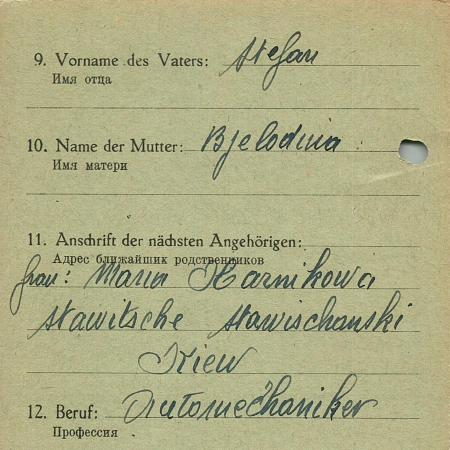 9. Vorname des Vaters: Stefan
Имя отца
10. Name der Mutter: Bjelodina
Имя матери
11. Anschrift der nächsten Angehörigen:
Адрес ближайших родственников
Frau: Maria Harnikowa
Stawitsche Stawischanski
Kiew
12. Beruf: Automechaniker
Профессия